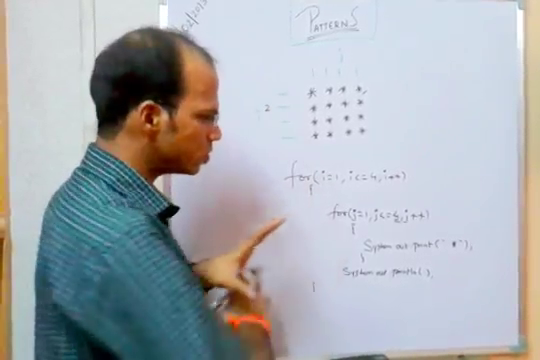 02/2013
PATTERNS
* * * *
2
* * * *
* * * *
* * * *
for(i=1, i<=4, i++)
{
for(j=1, j<=4, j++)
{
System out print(" * "),
}
System out println(),
}